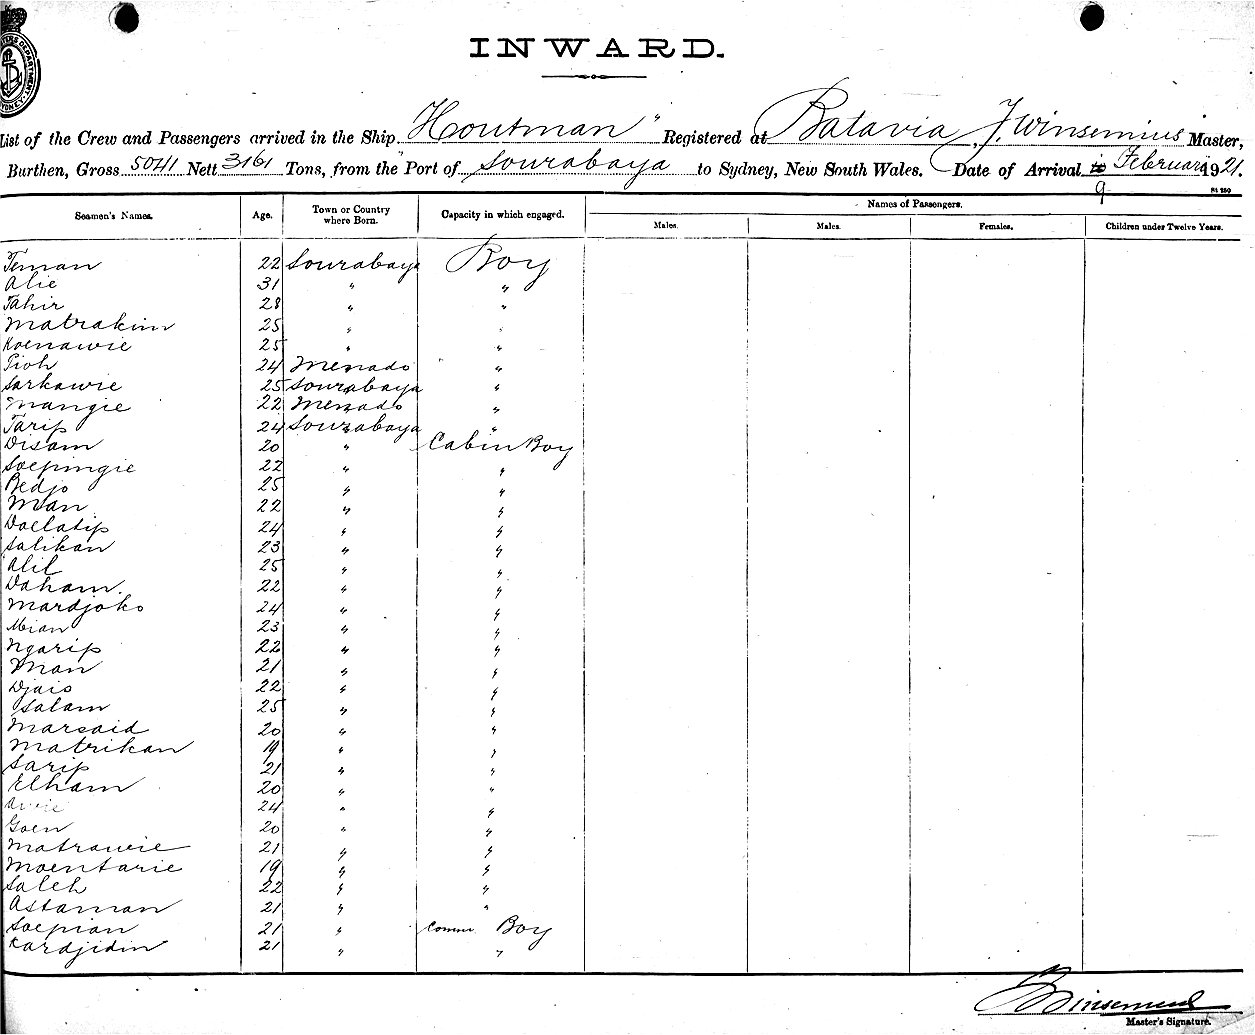 INWARD.
List of the Crew and Passengers arrived in the Ship "Houtman" Registered at Batavia, J. Winsemius Master,
Burthen, Gross 5041 Nett 3161 Tons, from the Port of Sourabaya to Sydney, New South Wales. Date of Arrival 9 Februari 1921.
Seamen's Names. Age. Town or Country where Born. Capacity in which engaged. Names of Passengers.
Males. Males. Females. Children under Twelve Years.
Teman 22 Sourabaya Boy
Alie 31 " "
Tahir 28 " "
Matrakim 25 " "
Koenawie 25 " "
Pioh 24 Menado "
Sarkawie 25 Sourabaya "
Mangie 22 Menado "
Tarip 24 Sourabaya "
Disam 20 " Cabin Boy
Soepingie 22 " "
Bedjo 25 " "
Man 22 " "
Doelatip 24 " "
Salikan 23 " "
Alil 25 " "
Daham. 22 " "
Mardjoko 24 " "
Mian 23 " "
Ngarip 22 " "
Man 21 " "
Djais 22 " "
Salam 25 " "
Marsaid 20 " "
Matrikan 19 " "
Sarip 21 " "
Elham 20 " "
24 " "
Goen 20 " "
Matrawie 21 " "
Moentarie 19 " "
Saleh 22 " "
Astaman 21 " "
Soepian 21 " Comm Boy
Kardjidin 21 " "
Winsemius
Master's Signature.